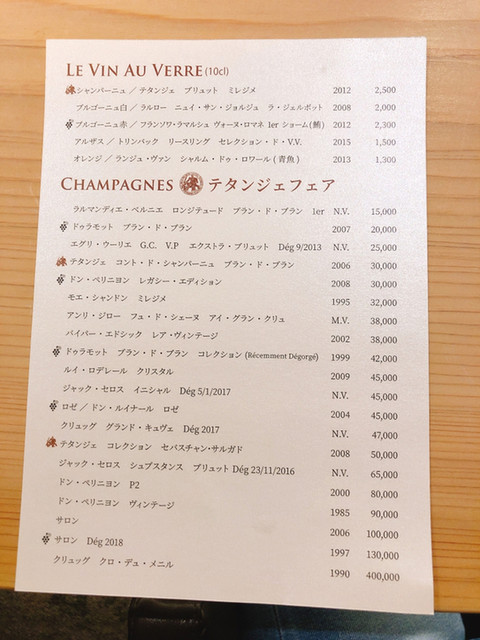 LE VIN AU VERRE (10cl)
シャンパーニュ／テタンジェ ブリュット ミレジメ 2012 2,500
ブルゴーニュ白／ラルロー ニュイ・サン・ジョルジュ ラ・ジェルボット 2008 2,000
ブルゴーニュ赤／フランソワ・ラマルシュ ヴォーヌ・ロマネ 1er ショーム(鮪) 2012 2,300
アルザス／トリンバック リースリング セレクション・ド・V.V. 2015 1,500
オレンジ／ランジュ・ヴァン シャルム・ドゥ・ロワール(青魚) 2013 1,300
CHAMPAGNES テタンジェフェア
ラルマンディエ・ベルニエ ロンジテュード ブラン・ド・ブラン 1er N.V. 15,000
ドゥラモット ブラン・ド・ブラン 2007 20,000
エグリ・ウーリエ G.C. V.P エクストラ・ブリュット Dég 9/2013 N.V. 25,000
テタンジェ コント・ド・シャンパーニュ ブラン・ド・ブラン 2006 30,000
ドン・ペリニヨン レガシー・エディション 2008 30,000
モエ・シャンドン ミレジメ 1995 32,000
アンリ・ジロー フュ・ド・シェーヌ アイ・グラン・クリュ M.V. 38,000
パイパー・エドシック レア・ヴィンテージ 2002 38,000
ドゥラモット ブラン・ド・ブラン コレクション(Récemment Dégorgé) 1999 42,000
ルイ・ロデレール クリスタル 2009 45,000
ジャック・セロス イニシャル Dég 5/1/2017 N.V. 45,000
ロゼ／ドン・ルイナール ロゼ 2004 45,000
クリュッグ グランド・キュヴェ Dég 2017 N.V. 47,000
テタンジェ コレクション セバスチャン・サルガド 2008 50,000
ジャック・セロス シュブスタンス ブリュット Dég 23/11/2016 N.V. 65,000
ドン・ペリニヨン P2 2000 80,000
ドン・ペリニヨン ヴィンテージ 1985 90,000
サロン 2006 100,000
サロン Dég 2018 1997 130,000
クリュッグ クロ・デュ・メニル 1990 400,000